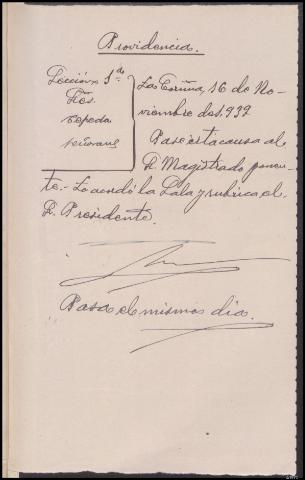 Providencia.
Sección 1ª
Sres.
Cepeda
La Coruña, 16 de No-
viembre de 1.932
Pase esta causa al
S. Magistrado ponen-
te.- Lo acordó la Sala y rubrica el
S. Presidente.
Pasa el mismo dia.